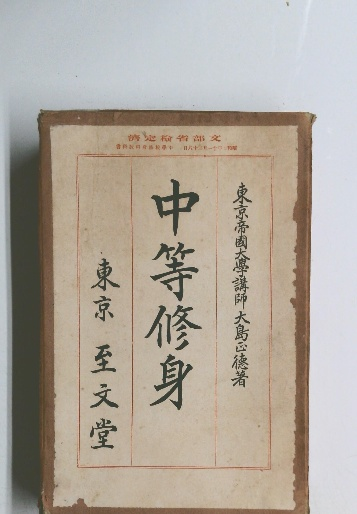 文部省檢定濟
東京帝國大學講師 大島正德著
中等修身
東京 至文堂